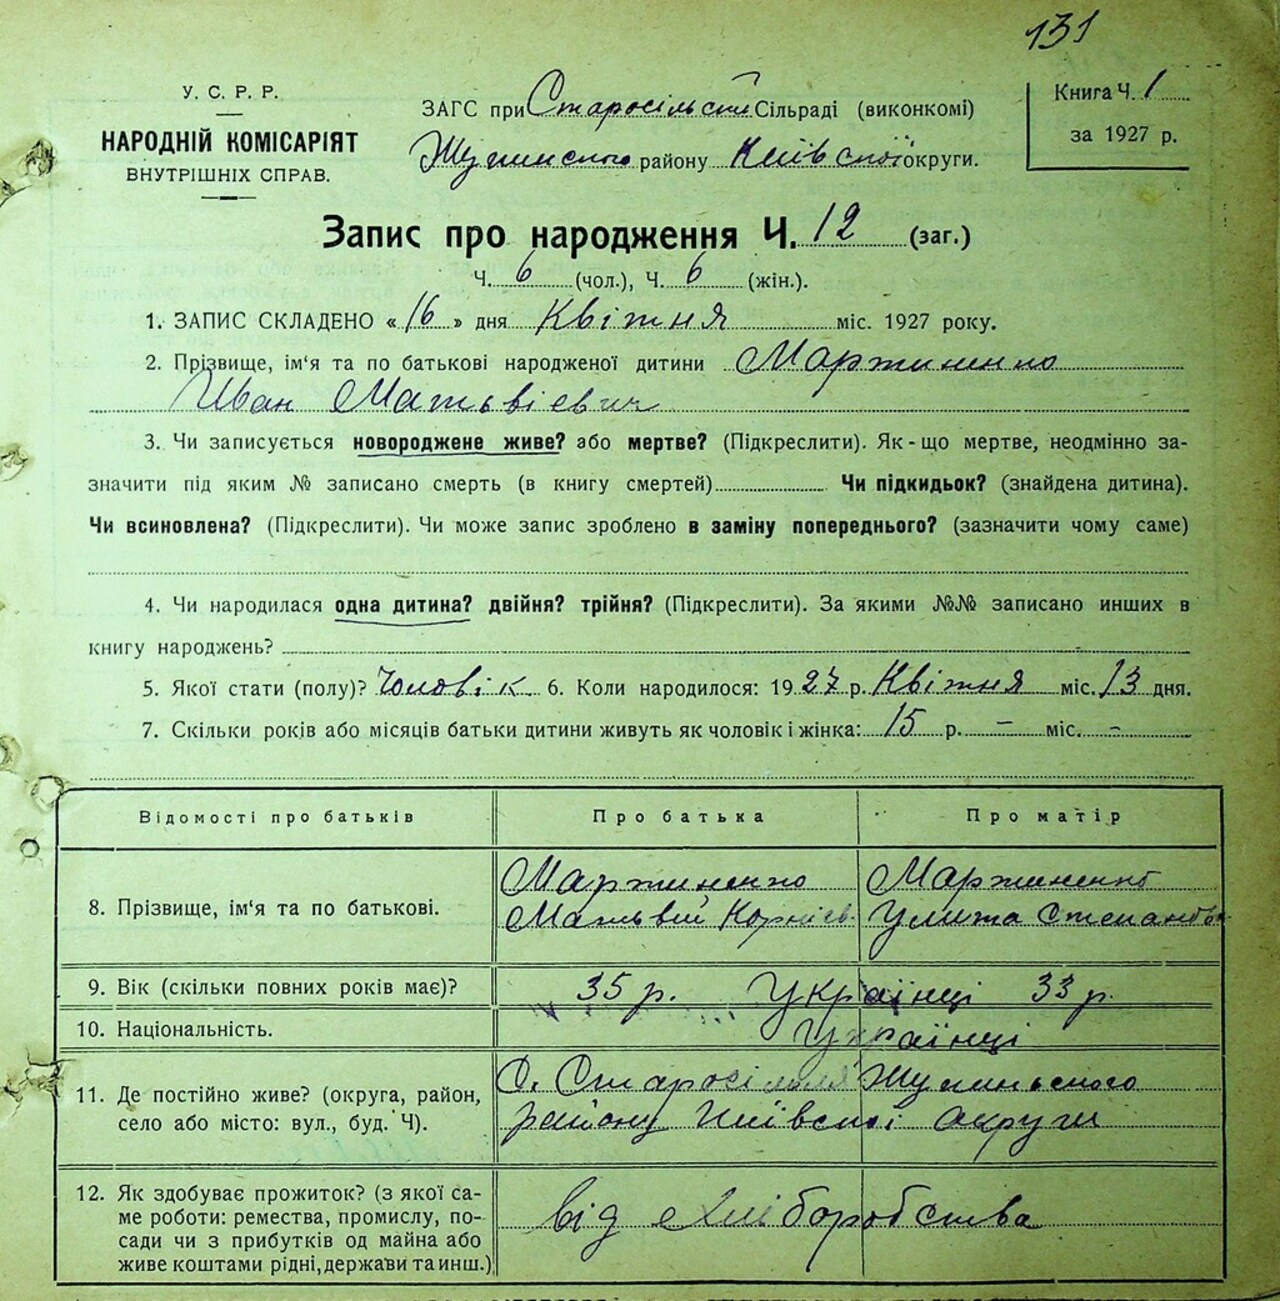 131
У. С. Р. Р.
НАРОДНІЙ КОМІСАРІЯТ
ВНУТРІШНІХ СПРАВ.
ЗАГС при Старосільській Сільраді (виконкомі)
району Київської округи.
Книга Ч. 1
за 1927 р.
Запис про народження Ч. 12 (заг.)
Ч. 6 (чол.), Ч. 6 (жін.).
1. ЗАПИС СКЛАДЕНО «16» дня Квітня міс. 1927 року.
2. Прізвище, ім'я та по батькові народженої дитини Мартиненко
Иван Матьвіевич
3. Чи записується новороджене живе? або мертве? (Підкреслити). Як-що мертве, неодмінно за-
значити під яким № записано смерть (в книгу смертей) Чи підкидьок? (знайдена дитина).
Чи всиновлена? (Підкреслити). Чи може запис зроблено в заміну попереднього? (зазначити чому саме)
4. Чи народилася одна дитина? двійня? трійня? (Підкреслити). За якими №№ записано инших в
книгу народжень?
5. Якої стати (полу)? Чоловік 6. Коли народилося: 1927 р. Квітня міс. 13 дня.
7. Скільки років або місяців батьки дитини живуть як чоловік і жінка: 15 р. – міс. –
Відомості про батьків
Про батька
Про матір
8. Прізвище, ім'я та по батькові.
Мартиненко
Матьвій Корнієв.
Мартиненко
Улита Степанов
9. Вік (скільки повних років має)?
35 р. Українці 33 р.
10. Національність.
Українці
11. Де постійно живе? (округа, район,
село або місто: вул., буд. Ч).
С. Старосілля
району Київської округи
12. Як здобуває прожиток? (з якої са-
ме роботи: ремества, промислу, по-
сади чи з прибутків од майна або
живе коштами рідні, держави та инш.)
від хліборобства